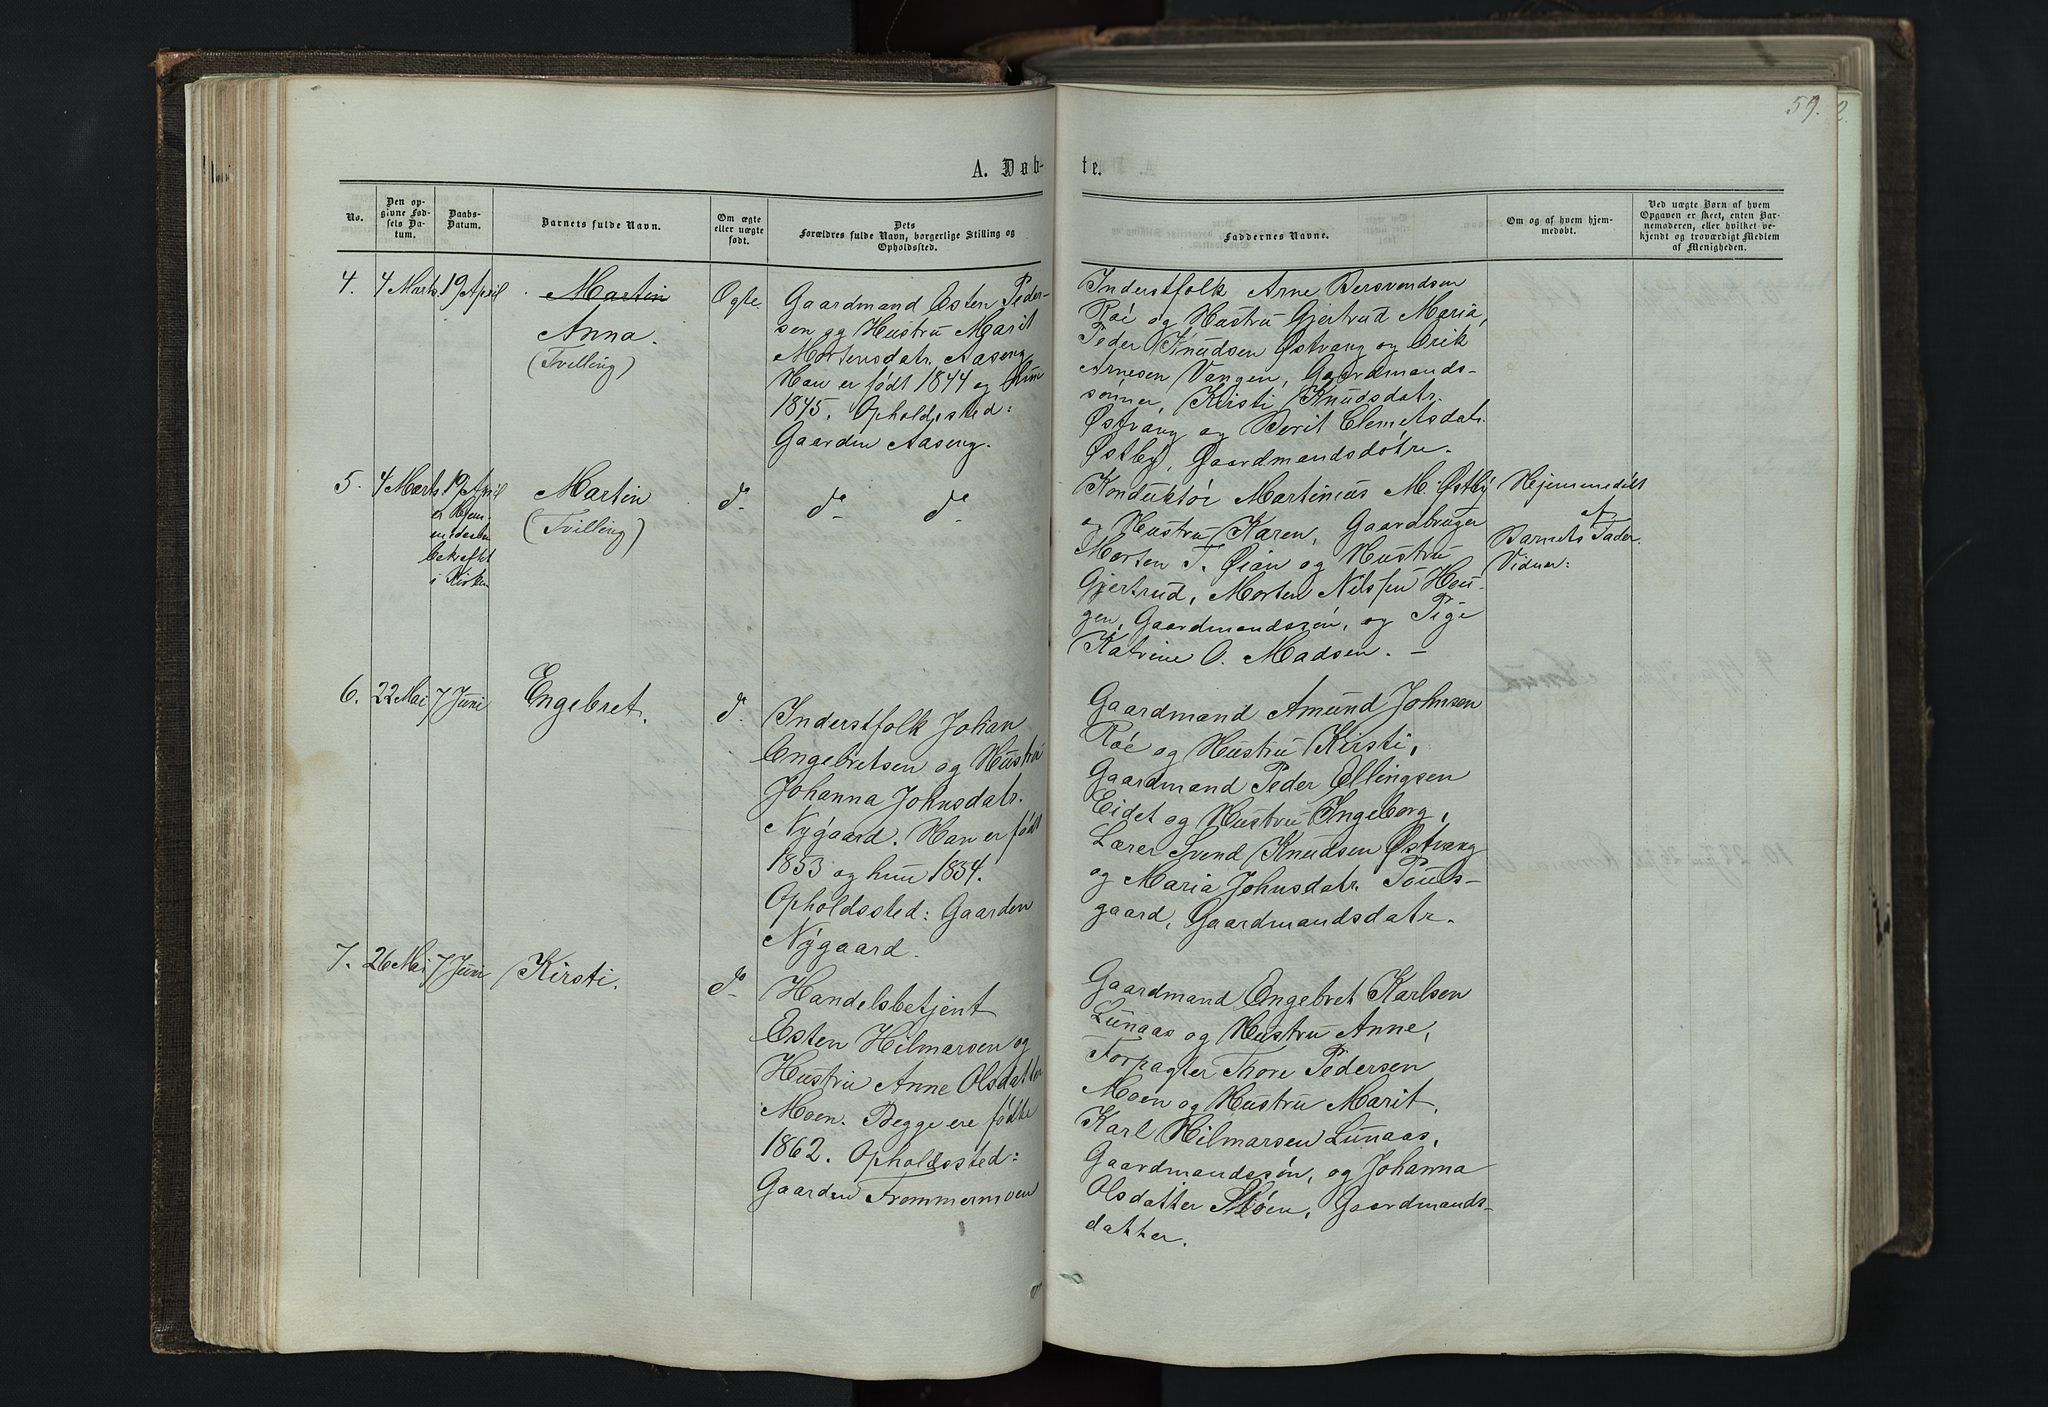 59.
2.
A. Døb-
te.
No.
Den op-
givne Fød-
sels Da-
tum.
Daabs-
Datum.
Barnets fulde Navn.
Om ægte
eller uægte
født.
Dets
Forældres fulde Navn, borgerlige Stilling og
Opholdssted.
Faddernes Navne.
Om og af hvem hjem-
medøbt.
Ved uægte Børn af hvem
Opgaven er skeet, enten Bar-
nemoderen, eller hvilket ve-
kjendt og troværdigt Medlem
af Menigheden.
4.
4 Marts
19 April
Martin
Anna.
(Tvilling)
Ægte
Gaardmand Esten Peder-
sen og Hustru Marit
Mortensdatr. Aaseng
Han er født 1844 og hun
1845. Opholdssted:
Gaarden Aaseng.
Inderstfolk Arne Bersvendsen
Roé og Hustru Gjertrud Maria,
Peder Knudsen Østvang og Erik
Arnesen Vangen, Gaardmands-
sønner, Kirsti Knudsdatr.
Østvang og Berit Clemetsdatr.
Østby, Gaardmandsdøtre.
5.
4 Marts
19 April
er Hjem-
medaaben
bekræftet
i Kirken
Martin
(Tvilling)
do
do
do
Konduktør Martinius M. Østby
og Hustru Karen, Gaardbruger
Morten T. Øian og Hustru
Gjertrud, Morten Nilssen Hau-
gen, Gaardmandssøn, og Pige
Katrine O. Madsen. —
Hjemmedøbt
af
Barnets Fader.
Vidner:
6.
22 Mai
7 Juni
Engebret.
do
Inderstfolk Johan
Engebretsen og Hustru
Johanna Johnsdatr.
Nygaard. Han er født
1853 og hun 1854.
Opholdssted: Gaarden
Nygaard.
Gaardmand Amund Johnsen
Roé og Hustru Kirsti,
Gaardmand Peder Ellingsen
Eidet og Hustru Ingeborg,
Lærer Svend Knudsen Østvang
og Maria Johnsdatr. Pouls-
gaard, Gaardmandsdatr.
7.
26 Mai
7 Juni
Kirsti.
do
Handelsbetjent
Esten Hilmarsen og
Hustru Anne Olsdatter
Moen. Begge ere fødte
1862. Opholdssted:
Gaarden Frommermoen
Gaardmand Engebret Karlsen
Lunaas og Hustru Anne,
Forpagter Thore Pedersen
Moen og Hustru Marit,
Karl Hilmarsen Lunaas,
Gaardmandssøn, og Johanna
Olsdatter Moen, Gaardmands-
datter.